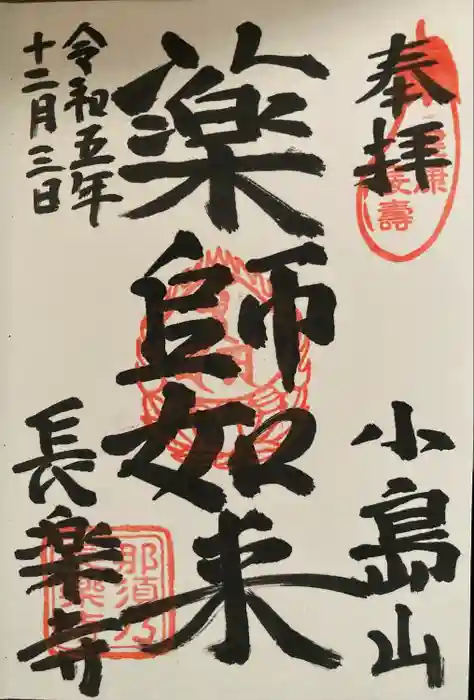 奉拝
健康
長壽
小島山
薬師如来
令和五年
十二月三日
長楽寺
那須乃
長樂寺